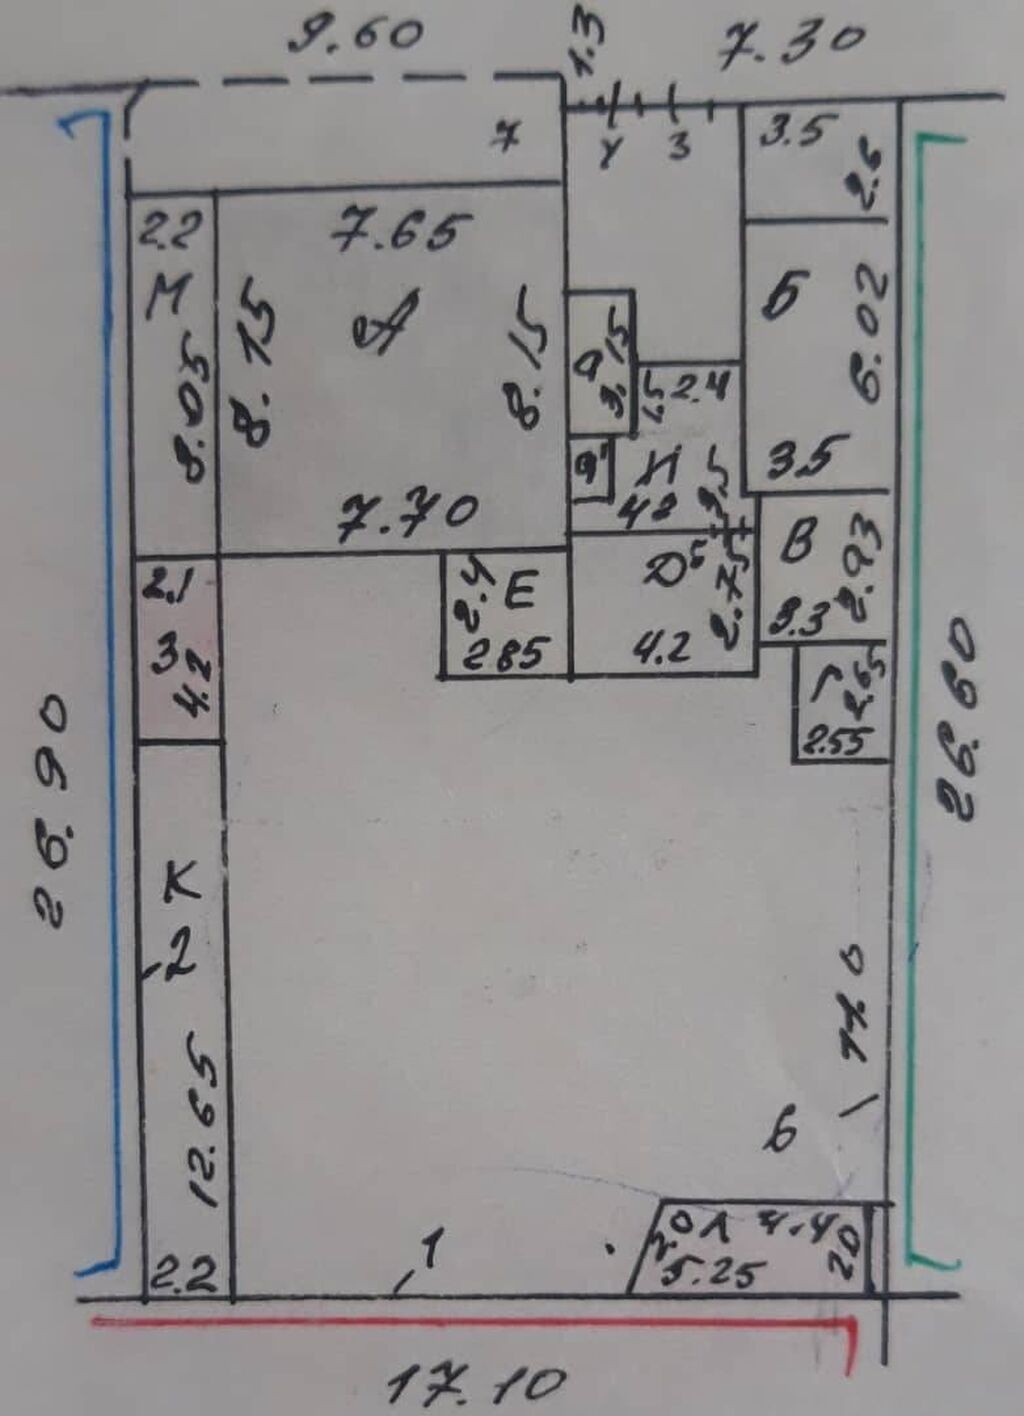 9.60
1.3
7.30
7
4
3
3.5
2.6
2.2
М
8.05
7.65
А
8.15
8.15
7.70
3.15
1.5
2.4
Б
6.02
3.5
И
4.8
2.1
3
4.2
2.4
Е
2.85
Д
5
2.75
4.2
В
2.93
3.3
Г
2.55
26.90
26.60
К
2
12.65
2.2
1
6
2.0
Л
4.4
5.25
2.0
17.10